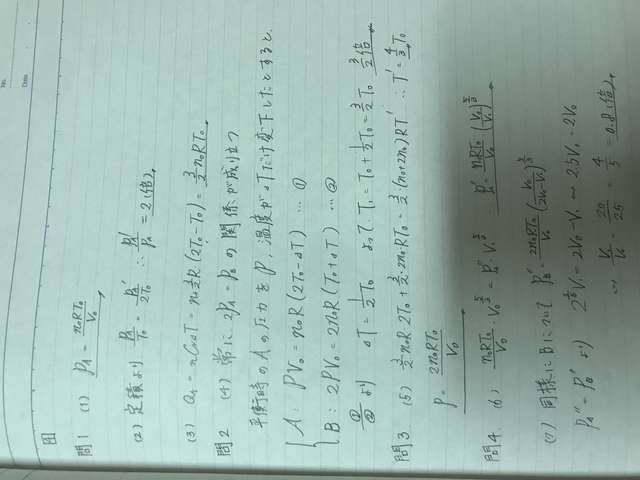 No.
Date
問1 (1) P_A = n₀RT₀/V₀
(2) 定積より P_A/T₀ = P_A'/2T₀ ∴ P_A'/P_A = 2(倍)
(3) Q₁ = nCvΔT = n₀ 3/2 R (2T₀ - T₀) = 3/2 n₀RT₀
問2 (4) 常に 2P_A = P_B の関係が成り立つ
平衡時のAの圧力をP, 温度がΔTだけ度下したとすると,
A : PV₀ = n₀R(2T₀ - ΔT) … ①
B : 2PV₀ = 2n₀R(T₀ + ΔT) … ②
①/② より ΔT = 1/2 T₀ よって T₁ = T₀ + 1/2 T₀ = 3/2 T₀ 3/2倍
問3. (5) 3/2 n₀R 2T₀ + 3/2 · 2n₀RT₀ = 3/2 · (n₀ + 2n₀)RT' ∴ T' = 4/3 T₀
P = 2n₀RT₀/V₀
問4. (6) n₀RT₀/V₀ · V₀^(5/3) = P_A'' · V₁^(5/3) P_A'' = n₀RT₀/V₀ (V₀/V₁)^(5/3)
(7) 同様にBについて P_B'' = 2n₀RT₀/V₀ (V₀/(2V₀-V₁))^(5/3)
P_A'' = P_B'' より 2^(3/5) V₁ = 2V₀ - V₁ ∽ 2.5V₁ = 2V₀
∽ V₁/V₀ = 20/25 = 4/5 = 0.8(倍)